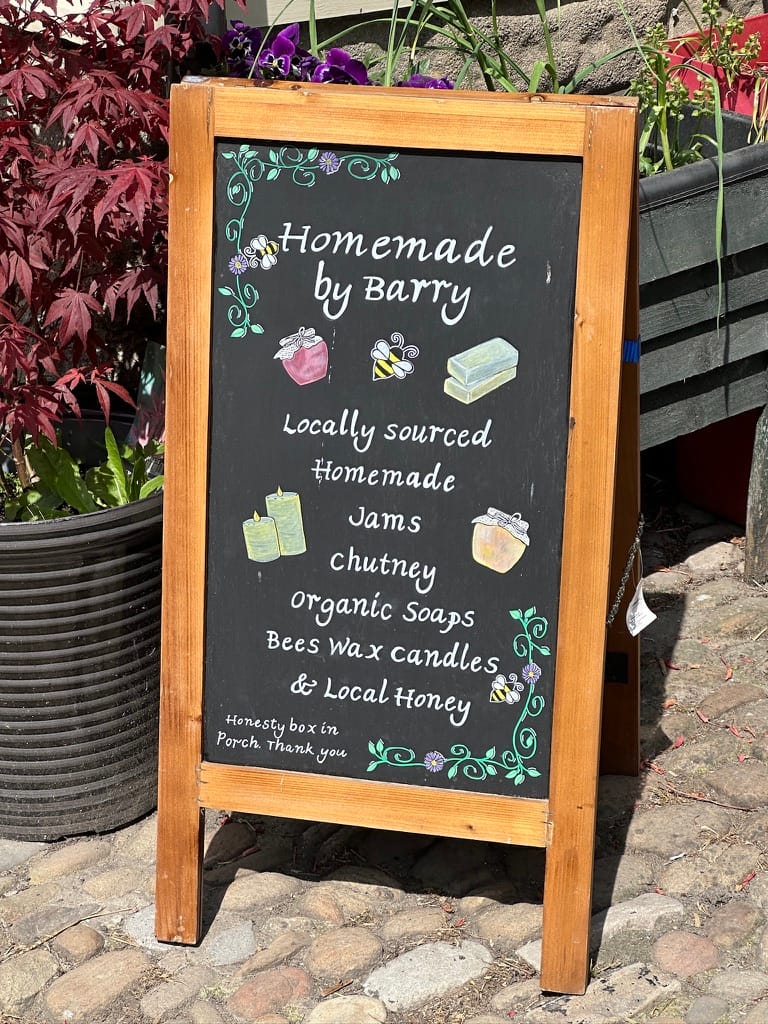 Homemade
by Barry
Locally sourced
Homemade
Jams
chutney
organic Soaps
Bees Wax candles
& Local Honey
Honesty box in
Porch. Thank you